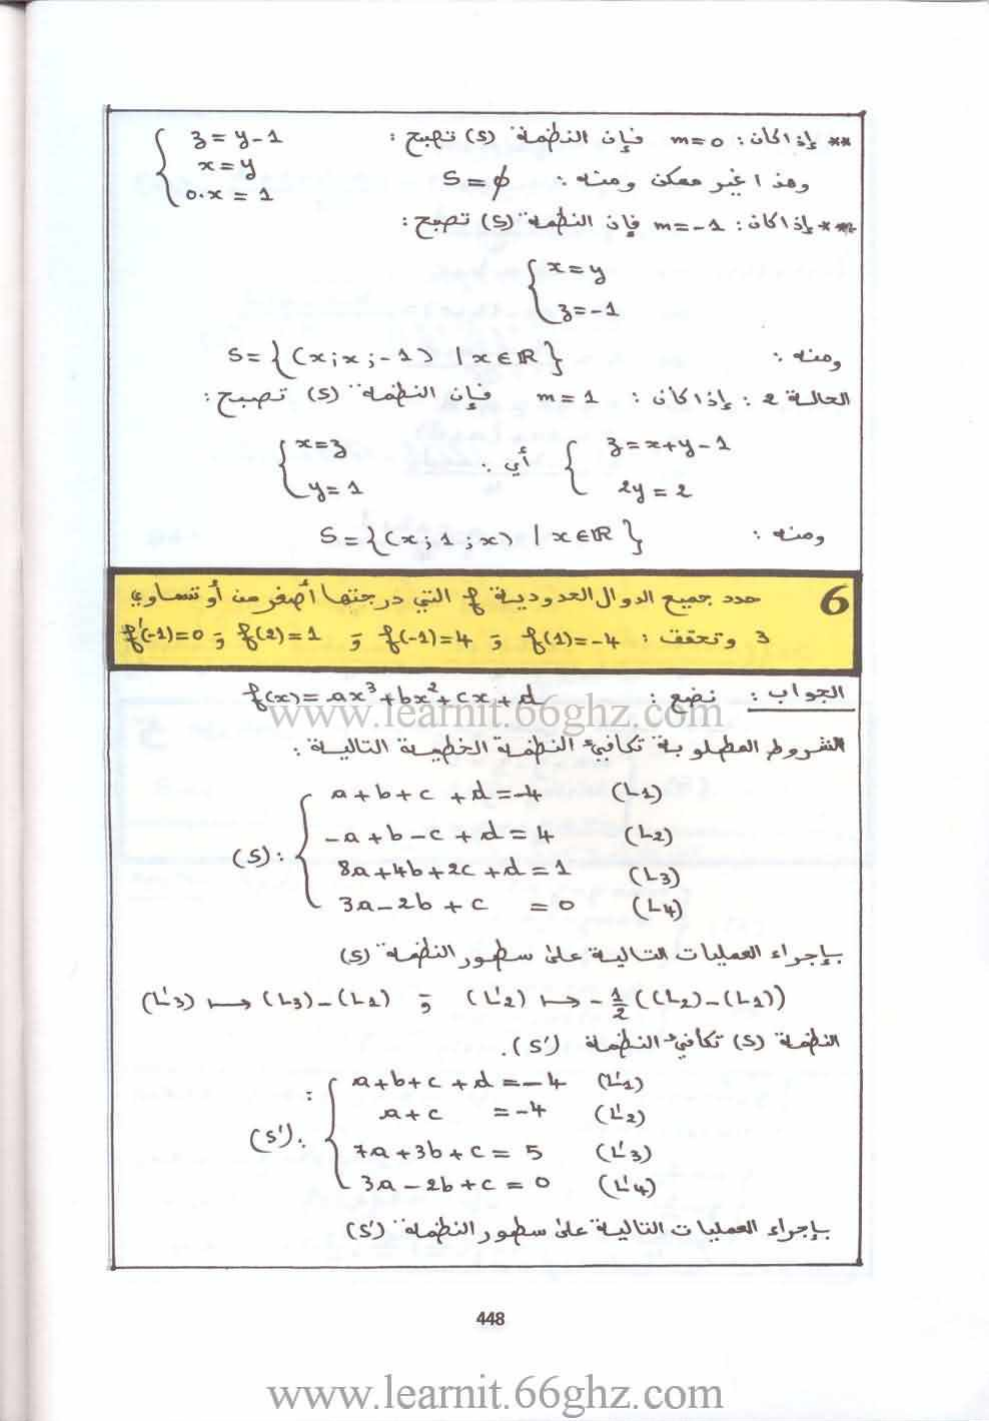 ** إذا كان : m=0 فإن النظمة (S) تصبح : { z = y-1
x = y
وهذا غير ممكن ومنه : S = ϕ
0.x = 1
** إذا كان : m=-1 فإن النظمة (S) تصبح :
{ x = y
z = -1
ومنه : S = { (x ; x ; -1) | x ∈ ℝ }
الحالة 2 : إذا كان : m = 1 فإن النظمة (S) تصبح :
{ z = x+y-1 أي : { x = z
2y = 2 y = 1
ومنه : S = { (x ; 1 ; x) | x ∈ ℝ }
6 حدد جميع الدوال الحدودية f التي درجتها أصغر من أو تساوي
3 وتحقق : f(1)=-4 و f(-1)=4 و f(2)=1 و f'(-1)=0
الجواب : نضع : f(x) = ax³+bx²+cx+d
www.learnit.66ghz.com
الشروط المطلوبة تكافئ النظمة الخطية التالية :
a+b+c+d = -4 (L1)
-a+b-c+d = 4 (L2)
(S) : {
8a+4b+2c+d = 1 (L3)
3a-2b+c = 0 (L4)
بإجراء العمليات التالية على سطور النظمة (S)
(L'3) ↦ (L3)-(L1) و (L'2) ↦ -½((L2)-(L1))
النظمة (S) تكافئ النظمة (S').
: a+b+c+d = -4 (L'1)
a+c = -4 (L'2)
(S') : {
7a+3b+c = 5 (L'3)
3a-2b+c = 0 (L'4)
بإجراء العمليات التالية على سطور النظمة (S')
448
www.learnit.66ghz.com